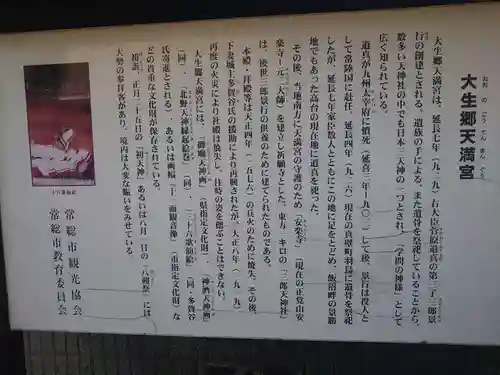 大生郷天満宮
おおのごうてんまんぐう
大生郷天満宮は、延長七年(九二九)右大臣菅原道真の第三子三郎景
行の創建とされる。遺族の手による、また道真の遺骨を祭祀していることから、
数多い天神社の中でも日本三天神の一つとされ、「学問の神様」として
広く知られている。
道真が九州太宰府に憤死(延喜三年=九〇三)して後、景行は役人と
して常陸国に赴任、延長四年(九二六)現在の真壁町羽鳥に遺骨を祭祀
したが、延長七年家臣数人とともにこの地に足をとどめ、飯沼畔の景勝
地でもあった高台の現在地に道真を祠った。
その後、当地南方に天満宮の守護のため「安楽寺」(現在の正覚山安
楽寺=元三大師)を建立し祈願寺とした。東方一キロの「三郎天神社」
は、後世三郎景行の供養のために建てられたものである。
本殿・拝殿等は天正四年(一五七六)の兵火のために焼失、その後、
下妻城主多賀谷氏の援助により再興されたが、大正八年(一九一九)
再度の火災により社殿は焼失し、往時の姿を偲ぶことはできない。
大生郷天満宮には、「御廟天神画」(県指定文化財)、「神酒天神画」
(同)、「北野天神縁起絵巻」(同)、あるいは画幅「十一面観音像」(市指定文化財)な
氏寄進とされる)、「三十六歌仙絵」(同・多賀谷
どの貴重な文化財が保存されている。
初詣、正月二十五日の「初天神」あるいは八月一日の「八朔祭」には
大勢の参拝客があり、境内は大変な賑いをみせている。
常総市観光協会
常総市教育委員会
三十六歌仙絵